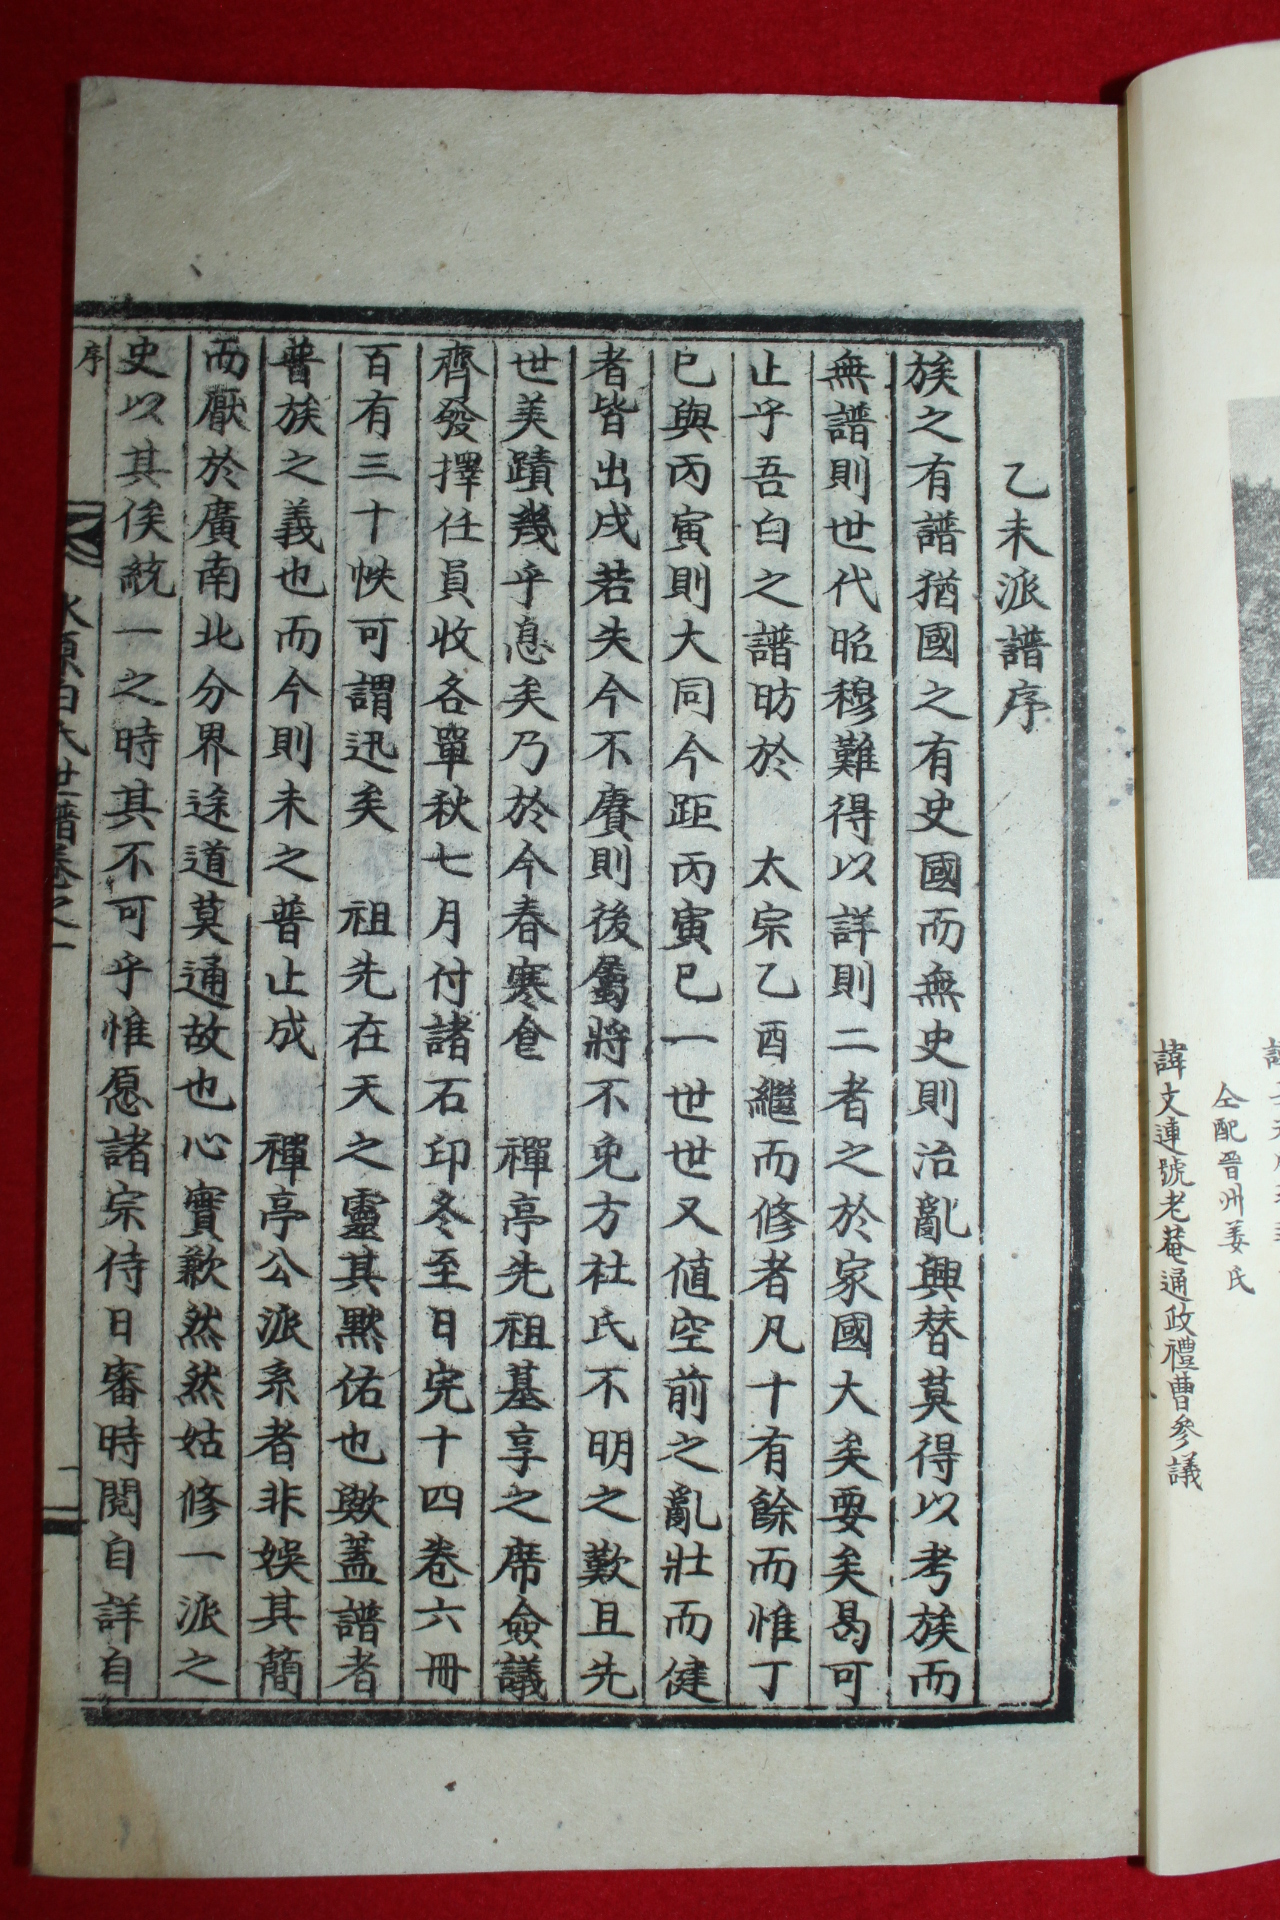 仝配晉州姜氏
諱文連號老菴通政禮曹參議
乙未派譜序
族之有譜猶國之有史國而無史則治亂興替莫得以考族而
無譜則世代昭穆難得以詳則二者之於家國大矣要矣曷可
止乎吾白之譜昉於 太宗乙酉繼而修者凡十有餘而惟丁
巳與丙寅則大同今距丙寅已一世世又値空前之亂壯而健
者皆出戍若失今不賡則後屬將不免方杜氏不明之歎且先
世美蹟幾乎息矣乃於今春寒食 禪亭先祖墓享之席僉議
齊發擇任員收各單秋七月付諸石印冬至日完十四卷六冊
百有三十帙可謂迅矣 祖先在天之靈其黙佑也歟蓋譜者
普族之義也而今則未之普止成 禪亭公派系者非娛其簡
而厭於廣南北分界途道莫通故也心實歉然然姑修一派之
史以其俟統一之時其不可乎惟愿諸宗侍日審時閱自詳自
序
水原白氏世譜卷之一